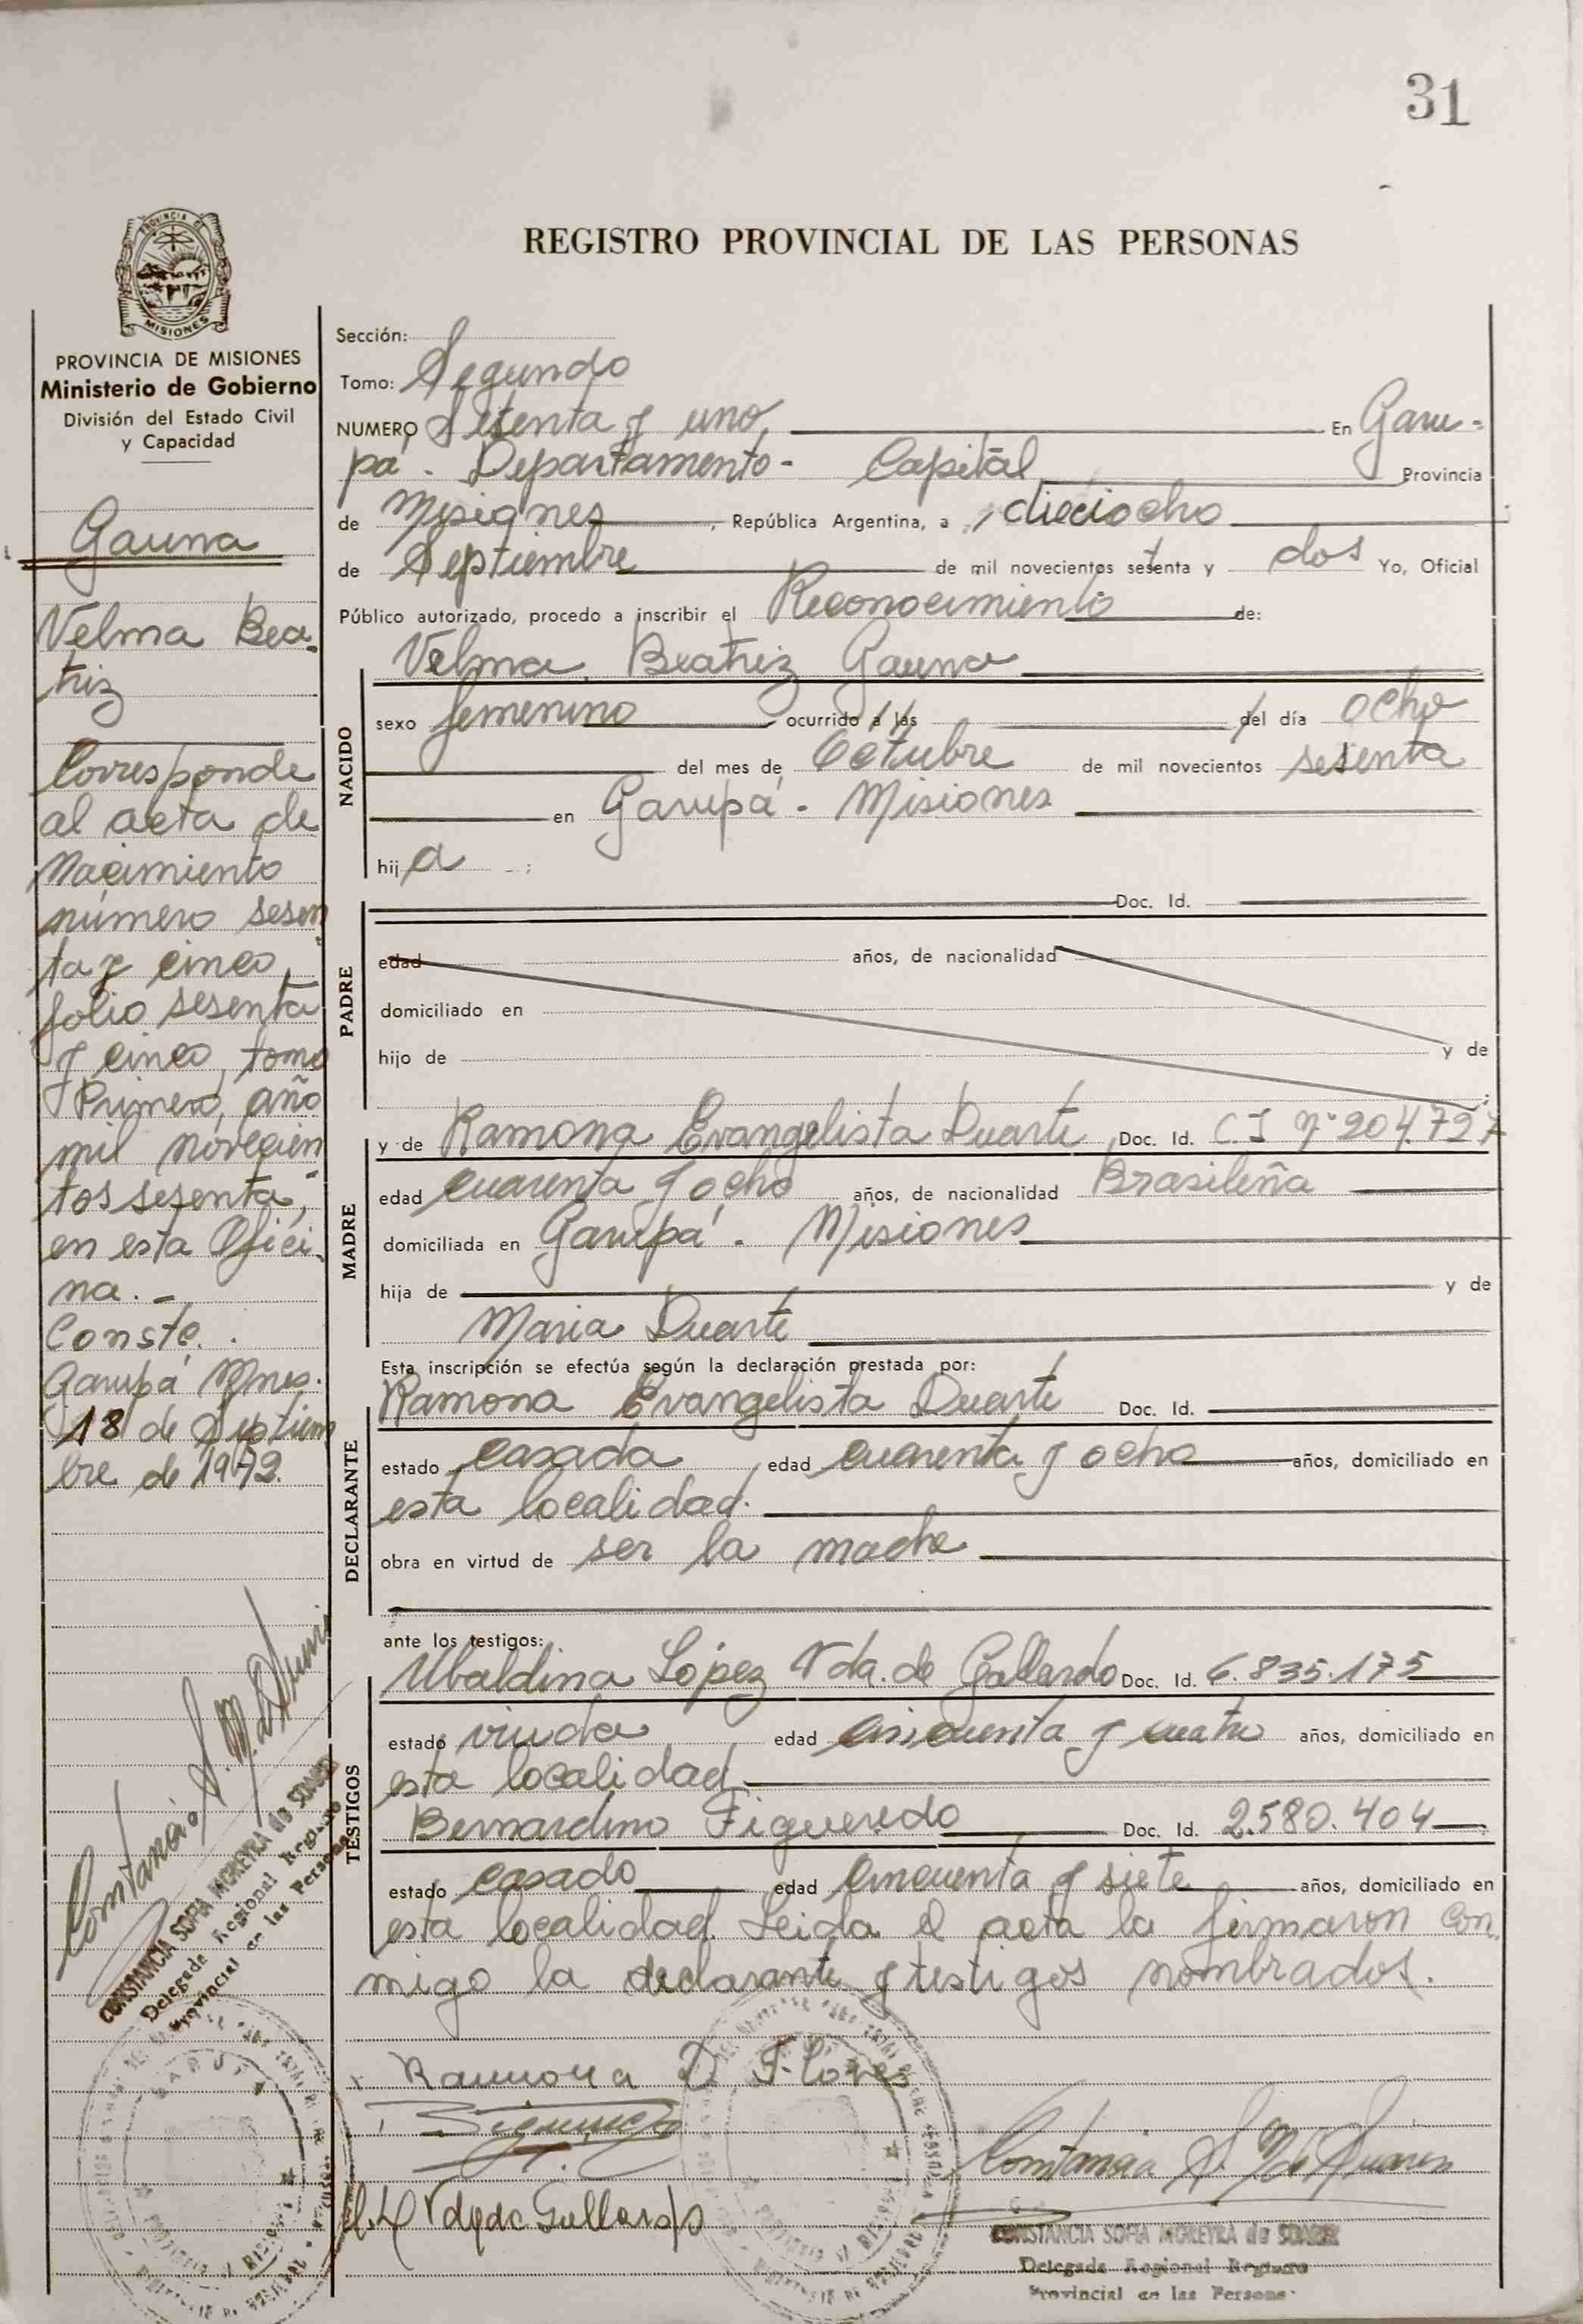 31
REGISTRO PROVINCIAL DE LAS PERSONAS
MISIONES
PROVINCIA DE MISIONES
Ministerio de Gobierno
División del Estado Civil
y Capacidad
Gauna
Velma Bea-
triz
Corresponde
al acta de
Nacimiento
número sesen
ta y cinco,
folio sesenta
y cinco, tomo
Primero, año
mil novecien
tos sesenta,
en esta Ofici-
na.-
Conste.
Garupá Mnes.
18 de Septiem
bre de 1972.
CONSTANCIA SOFIA MOREYRA de SUAREZ
Delegada Regional Registro
Provincial de las Personas
Sección:
Tomo: Segundo
NUMERO Setenta y uno, En Garu-
pá. Departamento- Capital Provincia
de Misiones, República Argentina, a dieciocho
de Septiembre de mil novecientos setenta y dos Yo, Oficial
Público autorizado, procedo a inscribir el Reconocimiento de:
Velma Beatriz Gauna
NACIDO
sexo femenino ocurrido a las del día ocho
del mes de Octubre de mil novecientos sesenta
en Garupá - Misiones
hija ;
PADRE
Doc. Id.
edad años, de nacionalidad
domiciliado en
hijo de y de
MADRE
y de Ramona Evangelista Duarte Doc. Id. C.I Nº 204.727
edad cuarenta y ocho años, de nacionalidad Brasileña
domiciliada en Garupá. Misiones
hija de y de
Maria Duarte
Esta inscripción se efectúa según la declaración prestada por:
DECLARANTE
Ramona Evangelista Duarte Doc. Id.
estado casada edad cuarenta y ocho años, domiciliado en
esta localidad.
obra en virtud de ser la madre
ante los testigos:
TESTIGOS
Ubaldina López Vda. de Gallardo Doc. Id. 6.835.175
estado viuda edad cincuenta y cuatro años, domiciliado en
esta localidad
Bernardino Figueredo Doc. Id. 2.580.404
estado casado edad cincuenta y siete años, domiciliado en
esta localidad. Leida el acta la firmaron con
migo la declarante y testigos nombrados.
Ramona D Flores
CONSTANCIA SOFIA MOREYRA de SUAREZ
Delegada Regional Registro
Provincial de las Personas